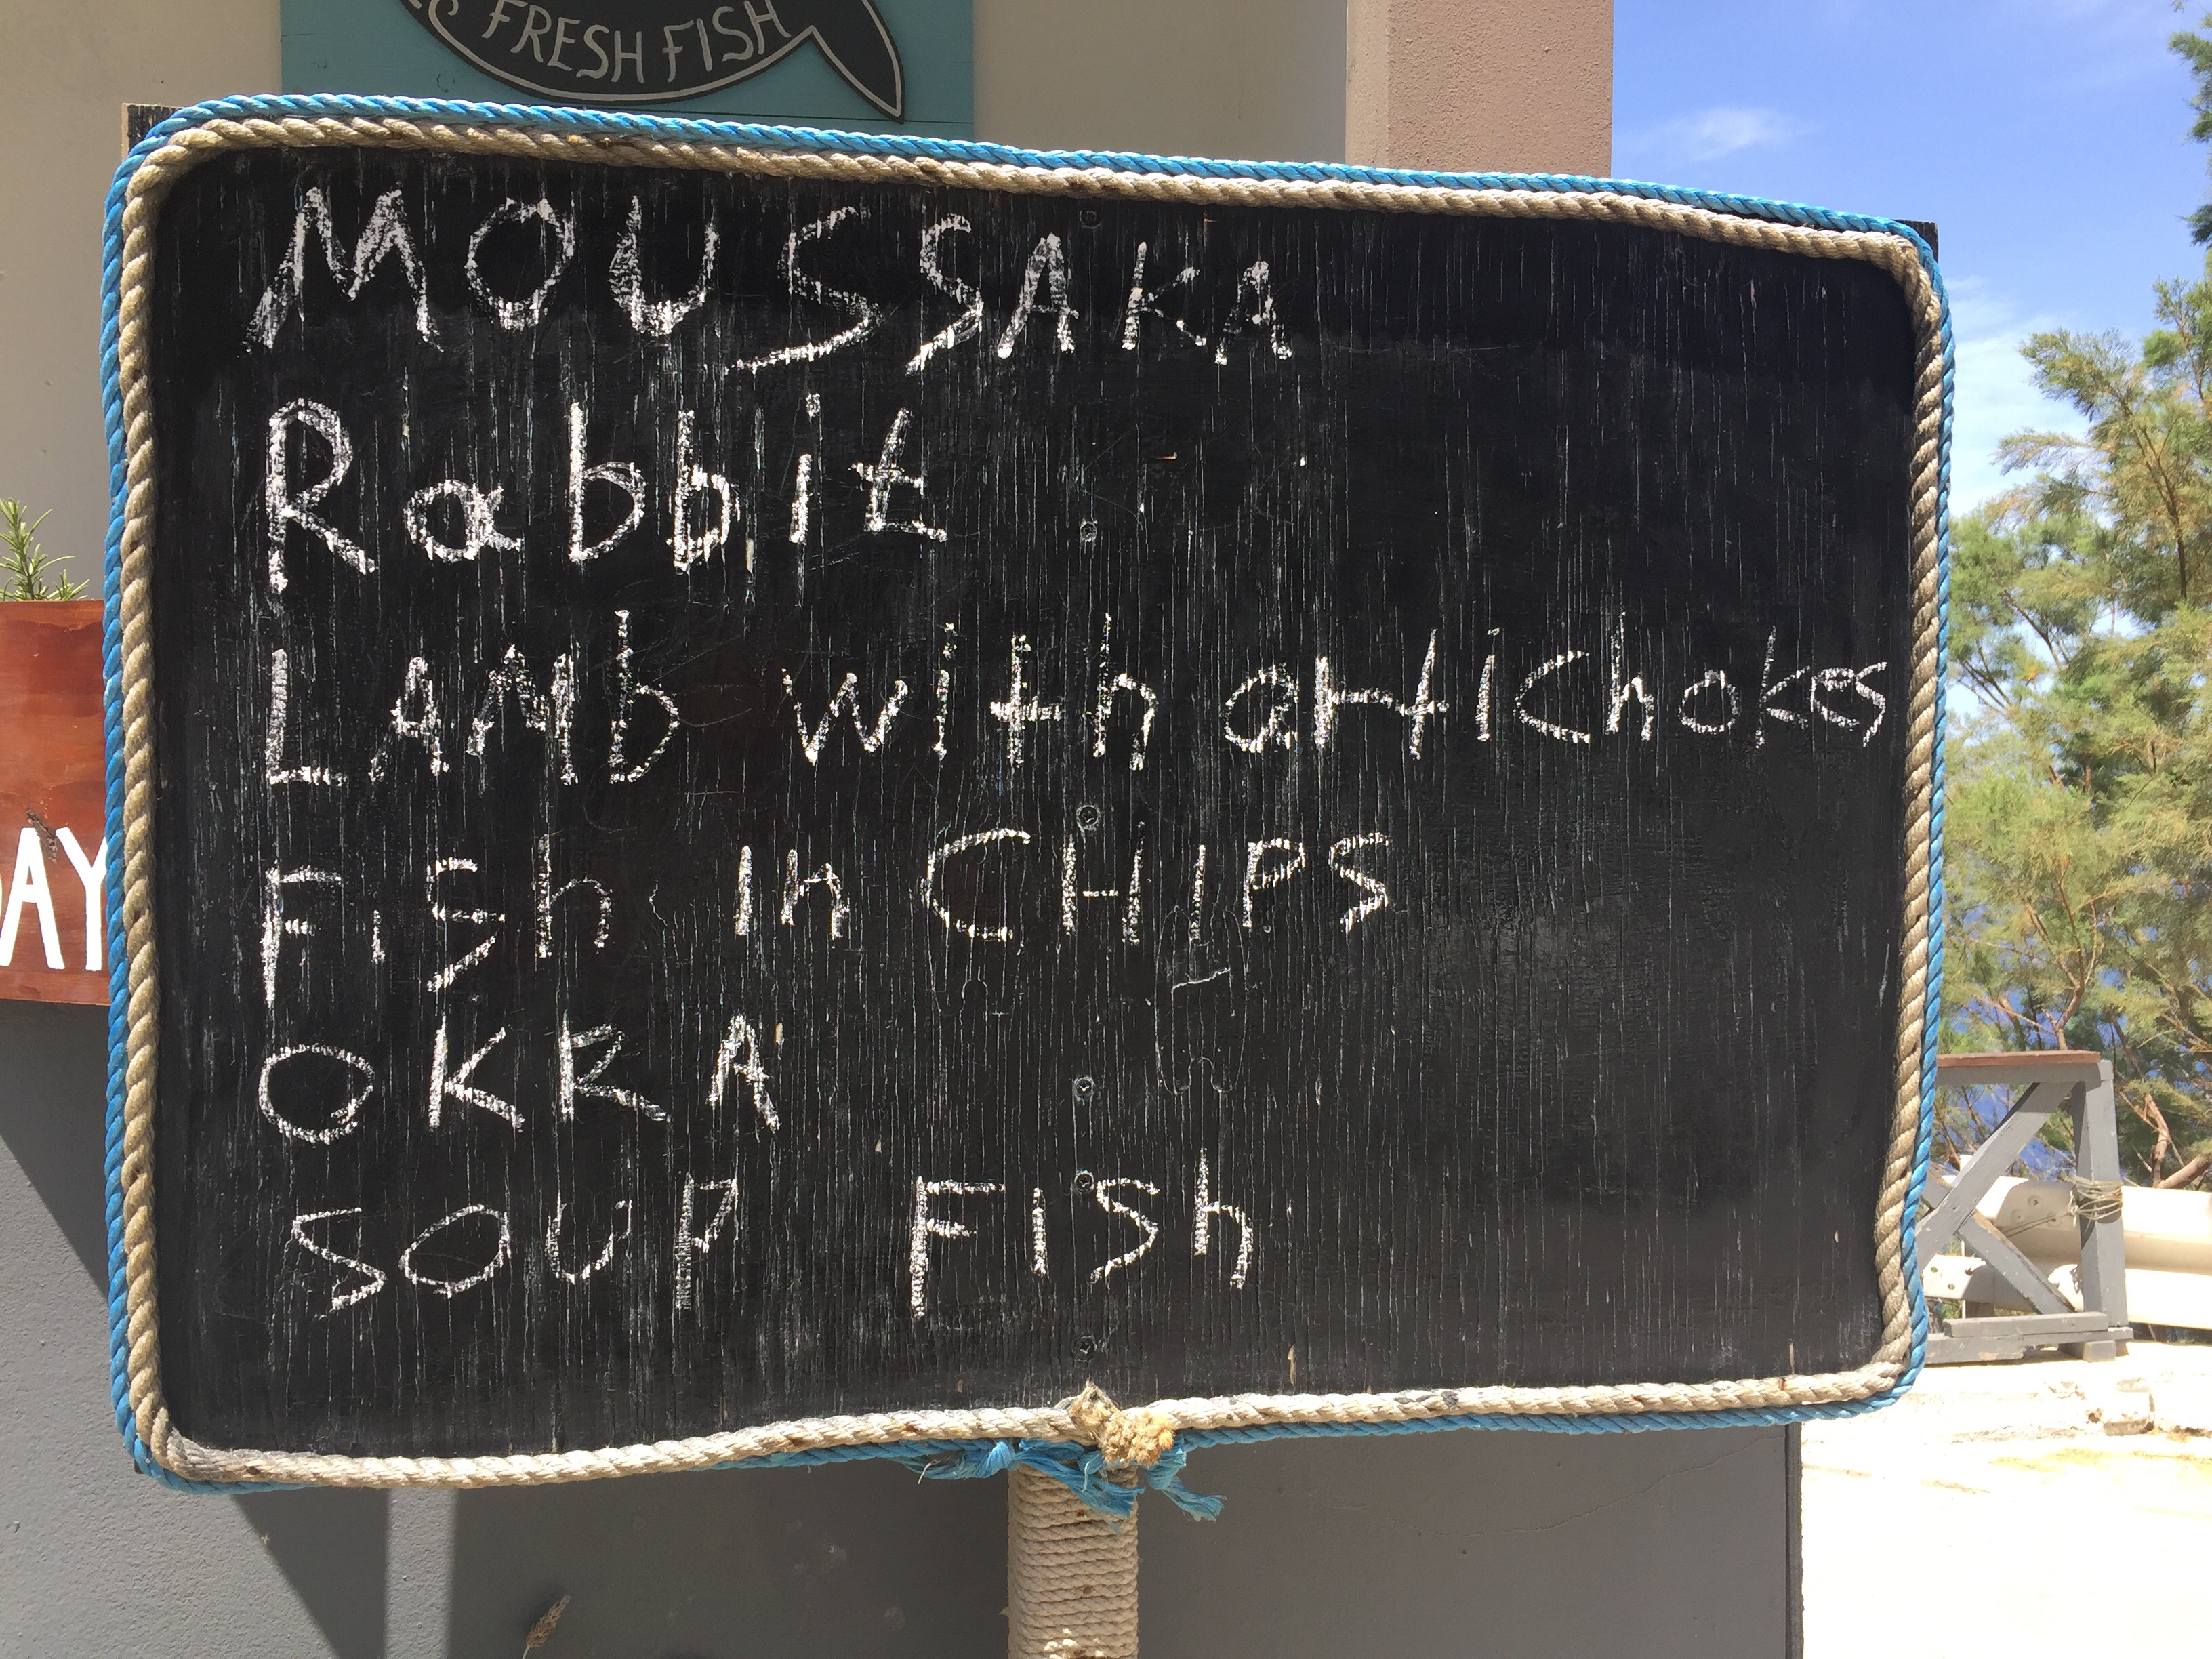 FRESH FISH
MOUSSAKA
Rabbit
LAMb with artichokes
Fish in CHIPS
OKRA
SOUP FISh